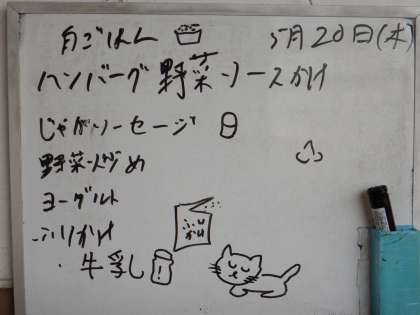 白ごはん 5月20日(木)
ハンバーグ野菜ソースかけ
じゃがソーセージ
野菜炒め
ヨーグルト
ふりかけ
・牛乳
ふりかけ